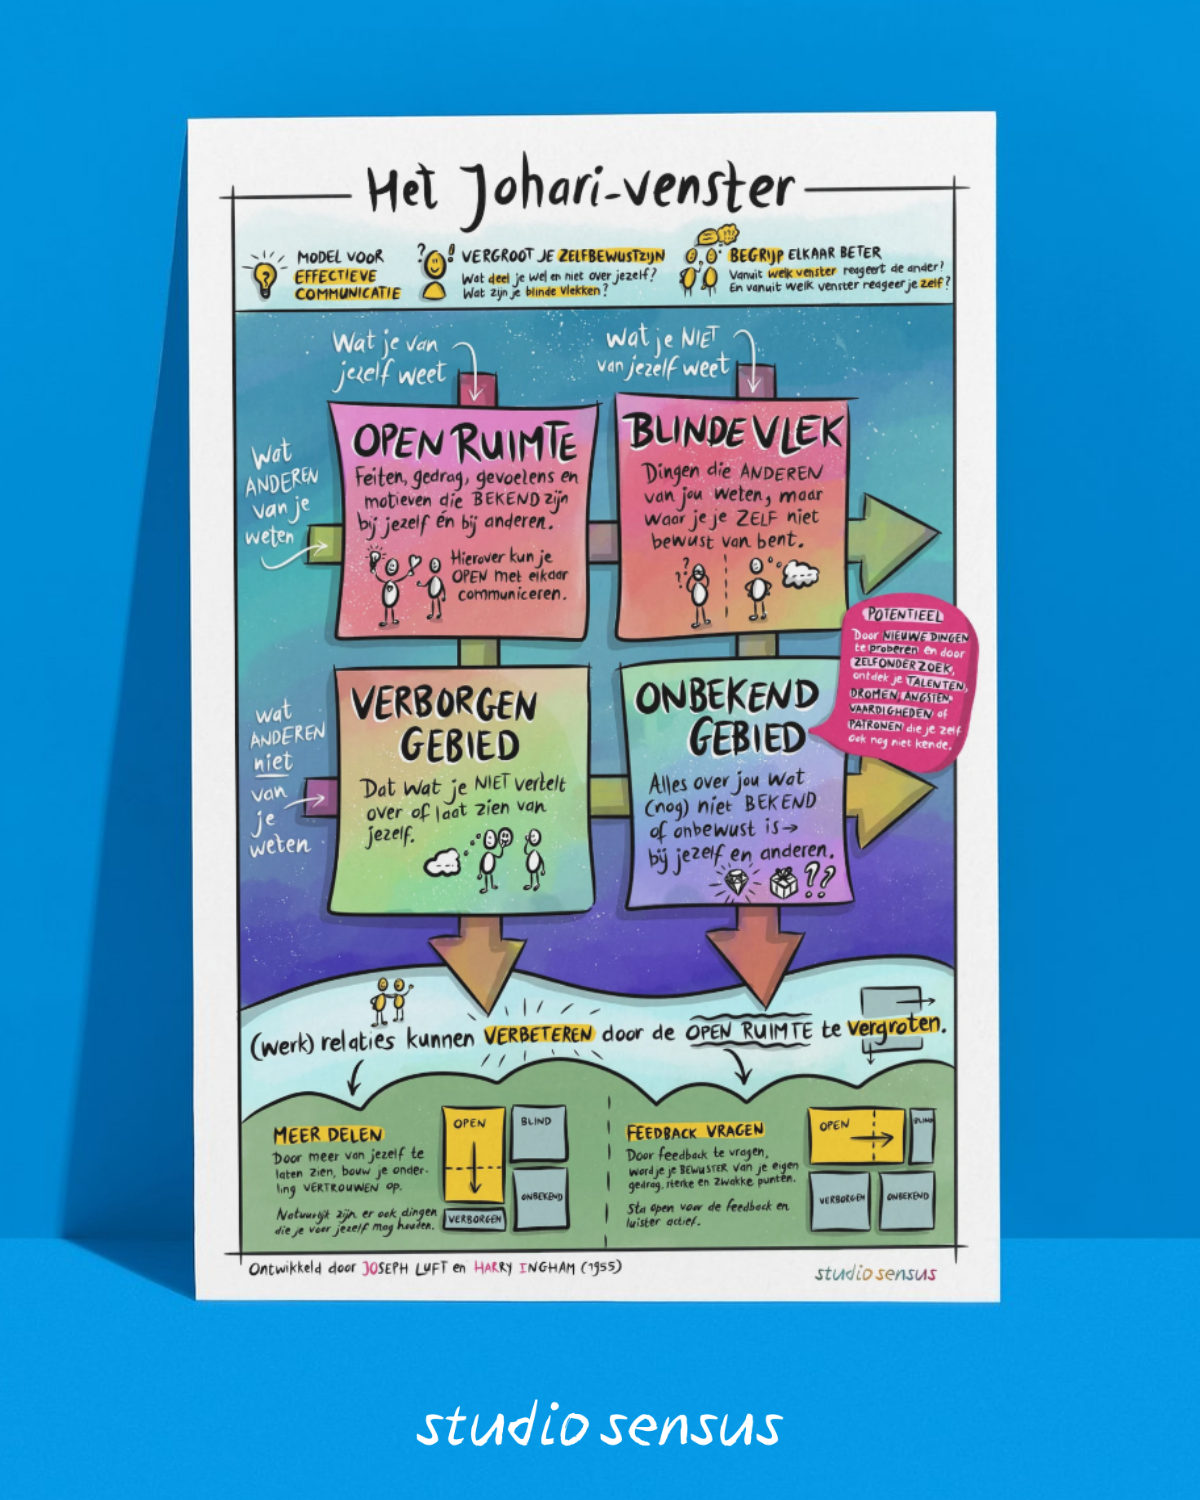 Het Johari-venster
MODEL VOOR
EFFECTIEVE
COMMUNICATIE
?
?!
VERGROOT JE ZELFBEWUSTZIJN
Wat deel je wel en niet over jezelf?
Wat zijn je blinde vlekken?
BEGRIJP ELKAAR BETER
Vanuit welk venster reageert de ander?
En vanuit welk venster reageer je zelf?
Wat je van
jezelf weet
Wat je NIET
van jezelf weet
Wat
ANDEREN
van je
weten
OPEN RUIMTE
Feiten, gedrag, gevoelens en
motieven die BEKEND zijn
bij jezelf én bij anderen.
Hierover kun je
OPEN met elkaar
communiceren.
BLINDE VLEK
Dingen die ANDEREN
van jou weten, maar
waar je je ZELF niet
bewust van bent.
???
wat
ANDEREN
niet
van
je
weten
VERBORGEN
GEBIED
Dat wat je NIET vertelt
over of laat zien van
jezelf.
ONBEKEND
GEBIED
Alles over jou wat
(nog) niet BEKEND
of onbewust is→
bij jezelf en anderen.
??
POTENTIEEL
Door NIEUWE DINGEN
te proberen en door
ZELFONDERZOEK,
ontdek je TALENTEN,
DROMEN, ANGSTEN,
VAARDIGHEDEN of
PATRONEN die je zelf
ook nog niet kende.
(werk) relaties kunnen VERBETEREN door de OPEN RUIMTE te vergroten.
MEER DELEN
Door meer van jezelf te
laten zien, bouw je onder-
ling VERTROUWEN op.
Natuurlijk zijn er ook dingen
die je voor jezelf mag houden.
OPEN
BLIND
ONBEKEND
VERBORGEN
FEEDBACK VRAGEN
Door feedback te vragen,
word je je BEWUSTER van je eigen
gedrag, sterke en zwakke punten.
Sta open voor de feedback en
luister actief.
OPEN
BLIND
VERBORGEN
ONBEKEND
Ontwikkeld door JOSEPH LUFT en HARRY INGHAM (1955)
studio sensus
studio sensus